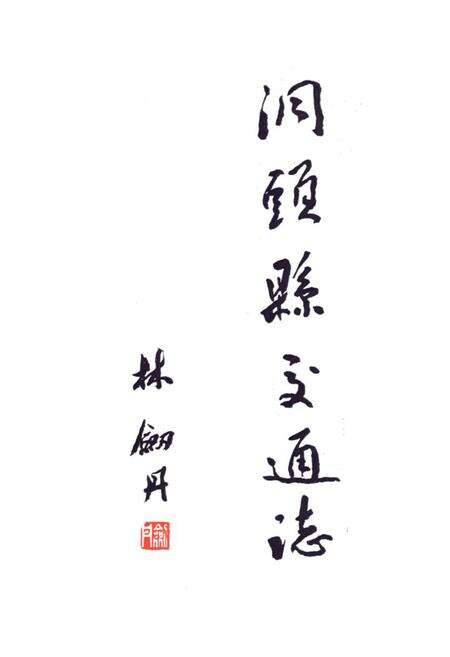 洞頭縣交通誌
林劍丹